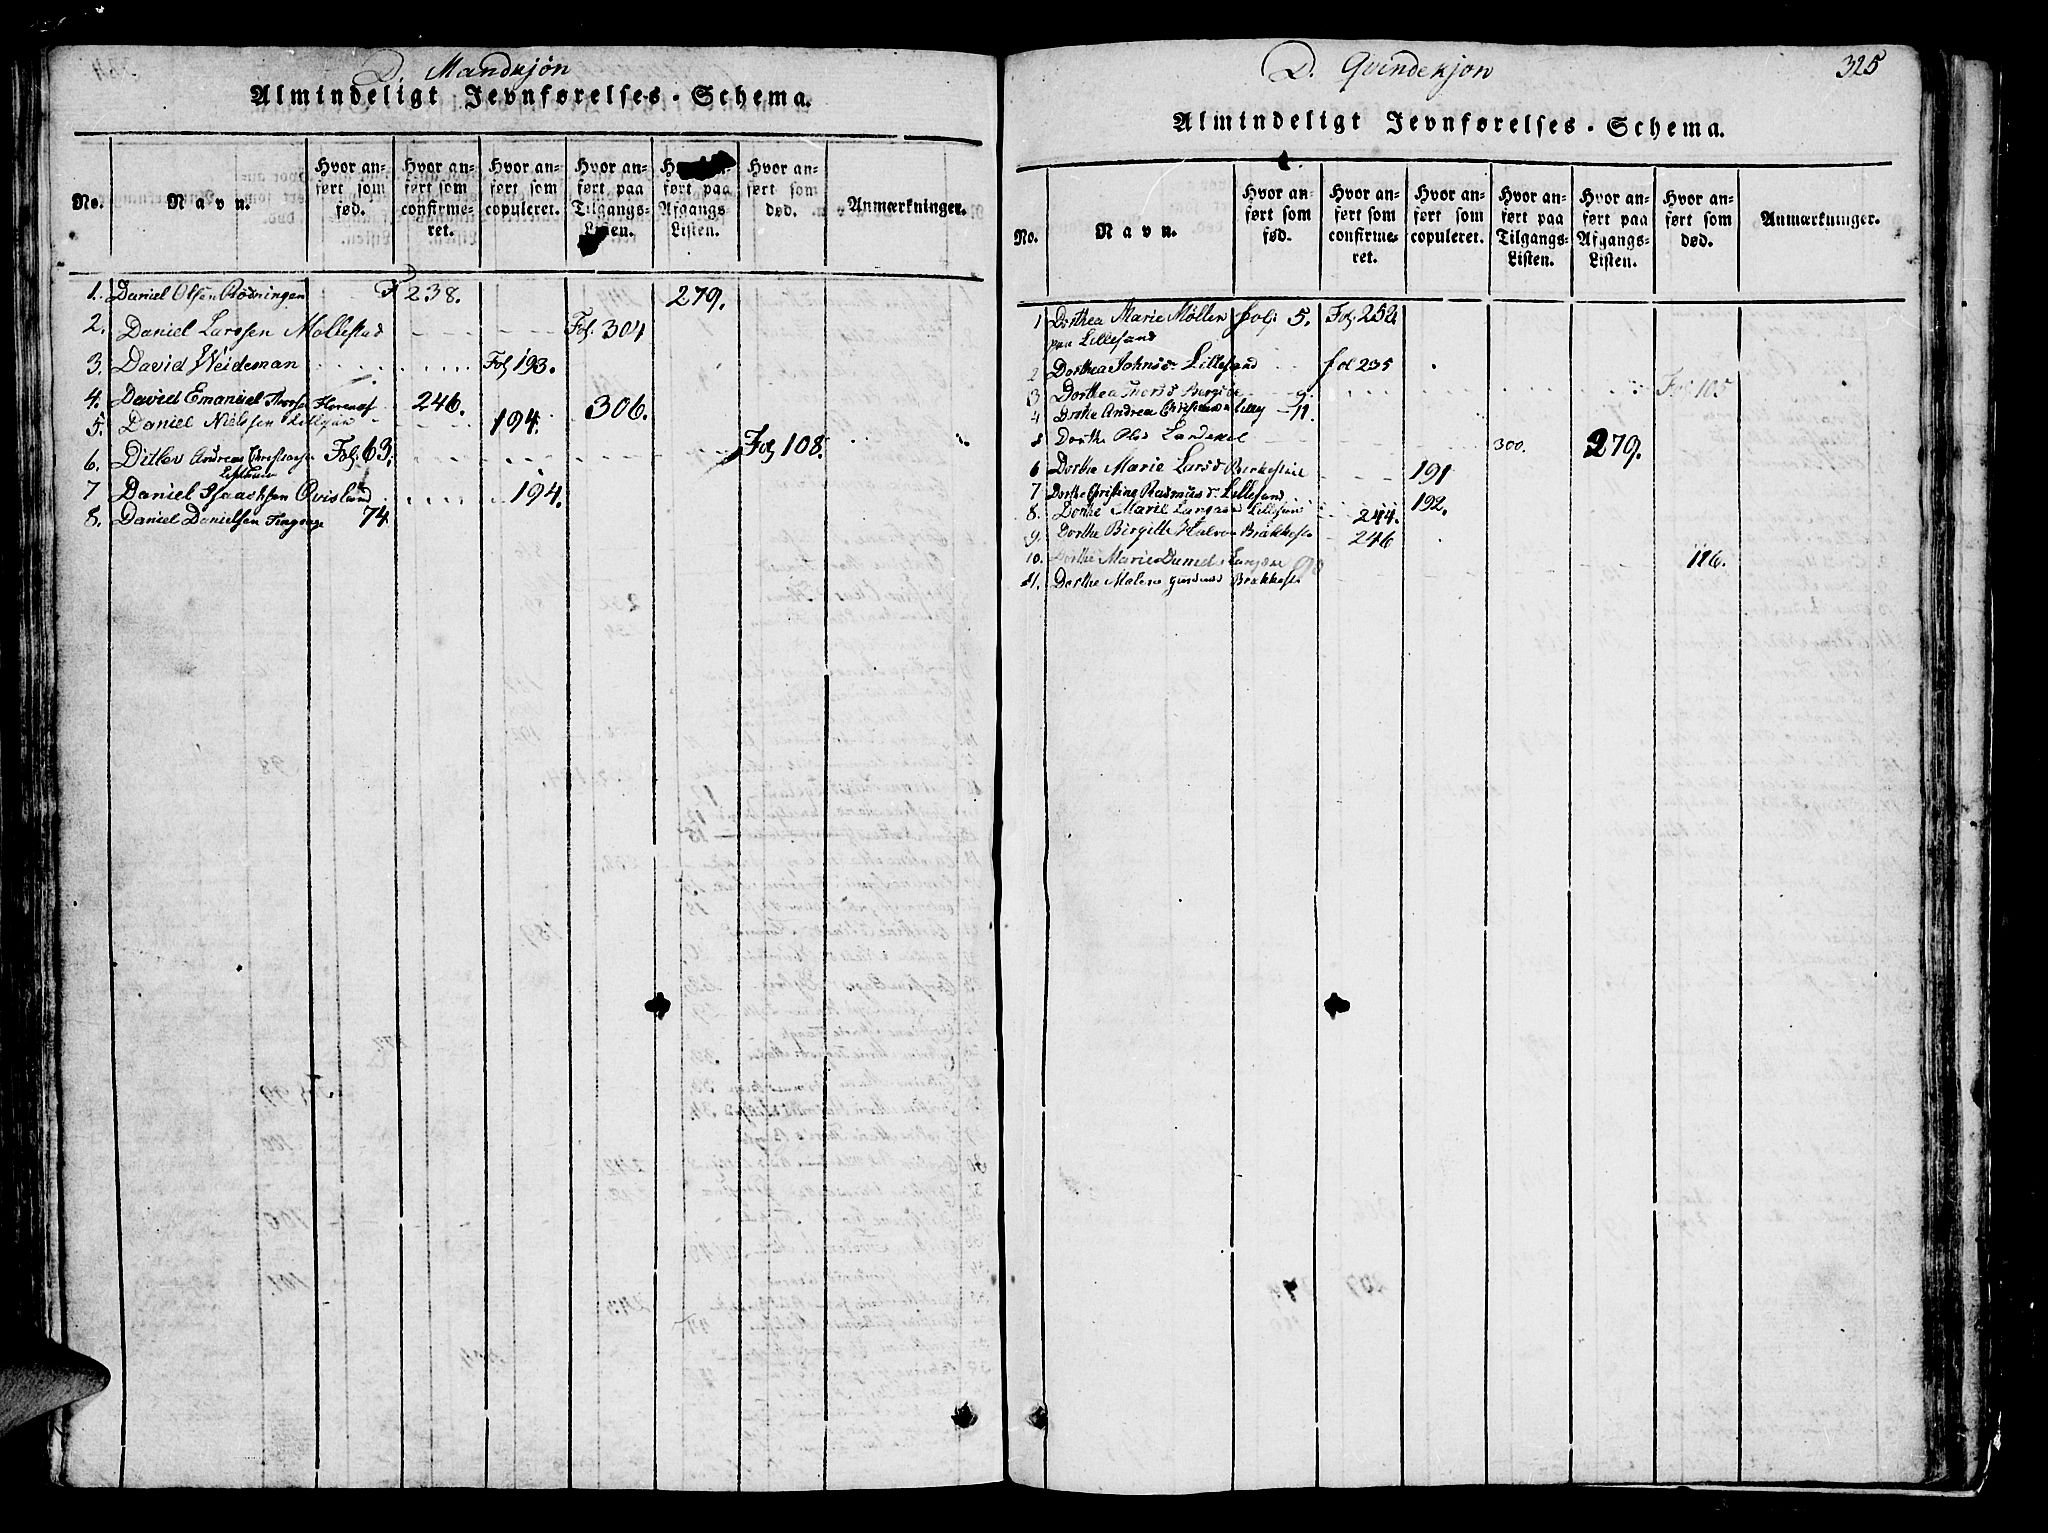 D. Mandkjøn
Almindeligt Jevnførelses-Schema.
No.
Navn.
Hvor anført som fød.
Hvor anført som confirmeret.
Hvor anført som copuleret.
Hvor anført paa Tilgangs-Listen.
Hvor anført paa Afgangs-Listen.
Hvor anført som død.
Anmærkninger.
1. Daniel Olsen Rødningen F 238. 279.
2. Daniel Larssen Mollestad Fol. 304
3. David Weideman Fol 193.
4. David Emanuel Thorsen Florenes 246. 306.
5. Daniel Nielssen Lillesand 194.
6. Ditlov Andreas Christiansen Fol. 63. Fol 108.
7 Daniel Isaachsen Qvisland 194.
8. Daniel Danielsen Tingsage 74.
D. Qvindekjøn
325
Almindeligt Jevnførelses-Schema.
No.
Navn.
Hvor anført som fød.
Hvor anført som confirmeret.
Hvor anført som copuleret.
Hvor anført paa Tilgangs-Listen.
Hvor anført paa Afgangs-Listen.
Hvor anført som død.
Anmærkninger.
1 Dorthea Marie Møller fol: 5. Fol 252.
paa Lillesand
2 Dorthea Johnsd. Lillesand fol 235
3 Dorthea Thorsd Bergsøe 9. Fol 105
4 Dorthe Andrea 11.
5 Dorthe Olsd 300. 279.
6 Dorthe Marie Larsd Birkedal 191
7 Dorthe Christine Rasmusd. Lillesand 192.
8. Dorthe Marie Lillesand 244.
9. Dorthe Birgitte Halvorsd Brækkestø 246
10. Dorthe Marie Danielsd 90 116.
11. Dorthe Malene Gundersd Brækkestø